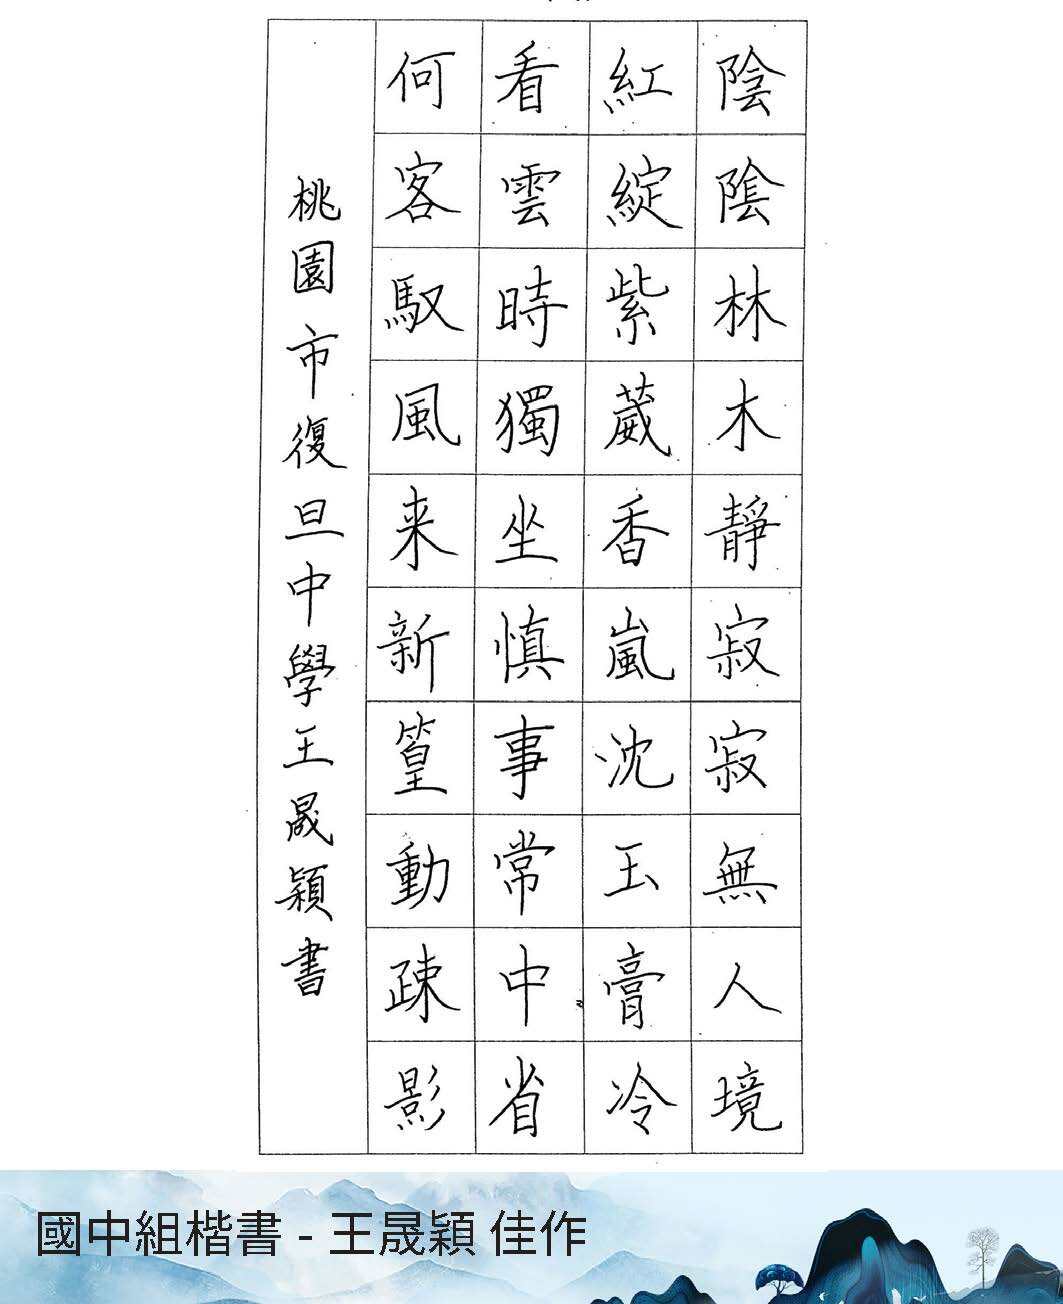 陰陰林木靜寂寂無人境
紅綻紫葳香嵐沈玉膏冷
看雲時獨坐慎事常中省
何客馭風来新篁動疎影
桃園市復旦中學王晟穎書
國中組楷書 - 王晟穎 佳作